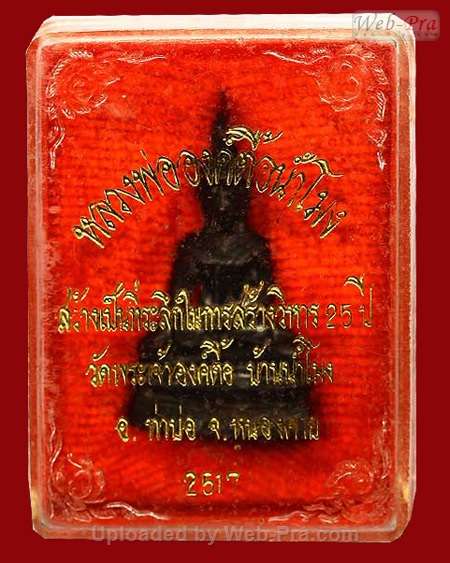 Web-Pra
หลวงพ่อองค์ตื้อน้ำโมง
สร้างเป็นที่ระลึกในการสร้างวิหาร 25 ปี
วัดพระเจ้าองค์ตื้อ บ้านน้ำโมง
อ. ท่าบ่อ จ. หนองคาย
2517
Uploaded by Web-Pra.com